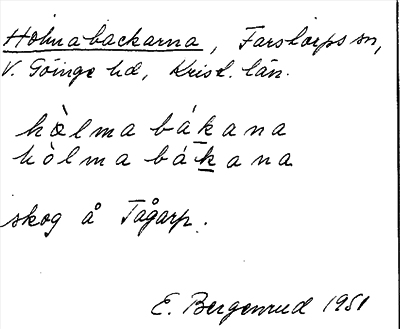 Holmabackarna, Farstorps sn,
V. Göinge hd, Krist. län.
hòlmabákana
hòlmabákana
skog å Tågarp.
E. Bergenrud 1951